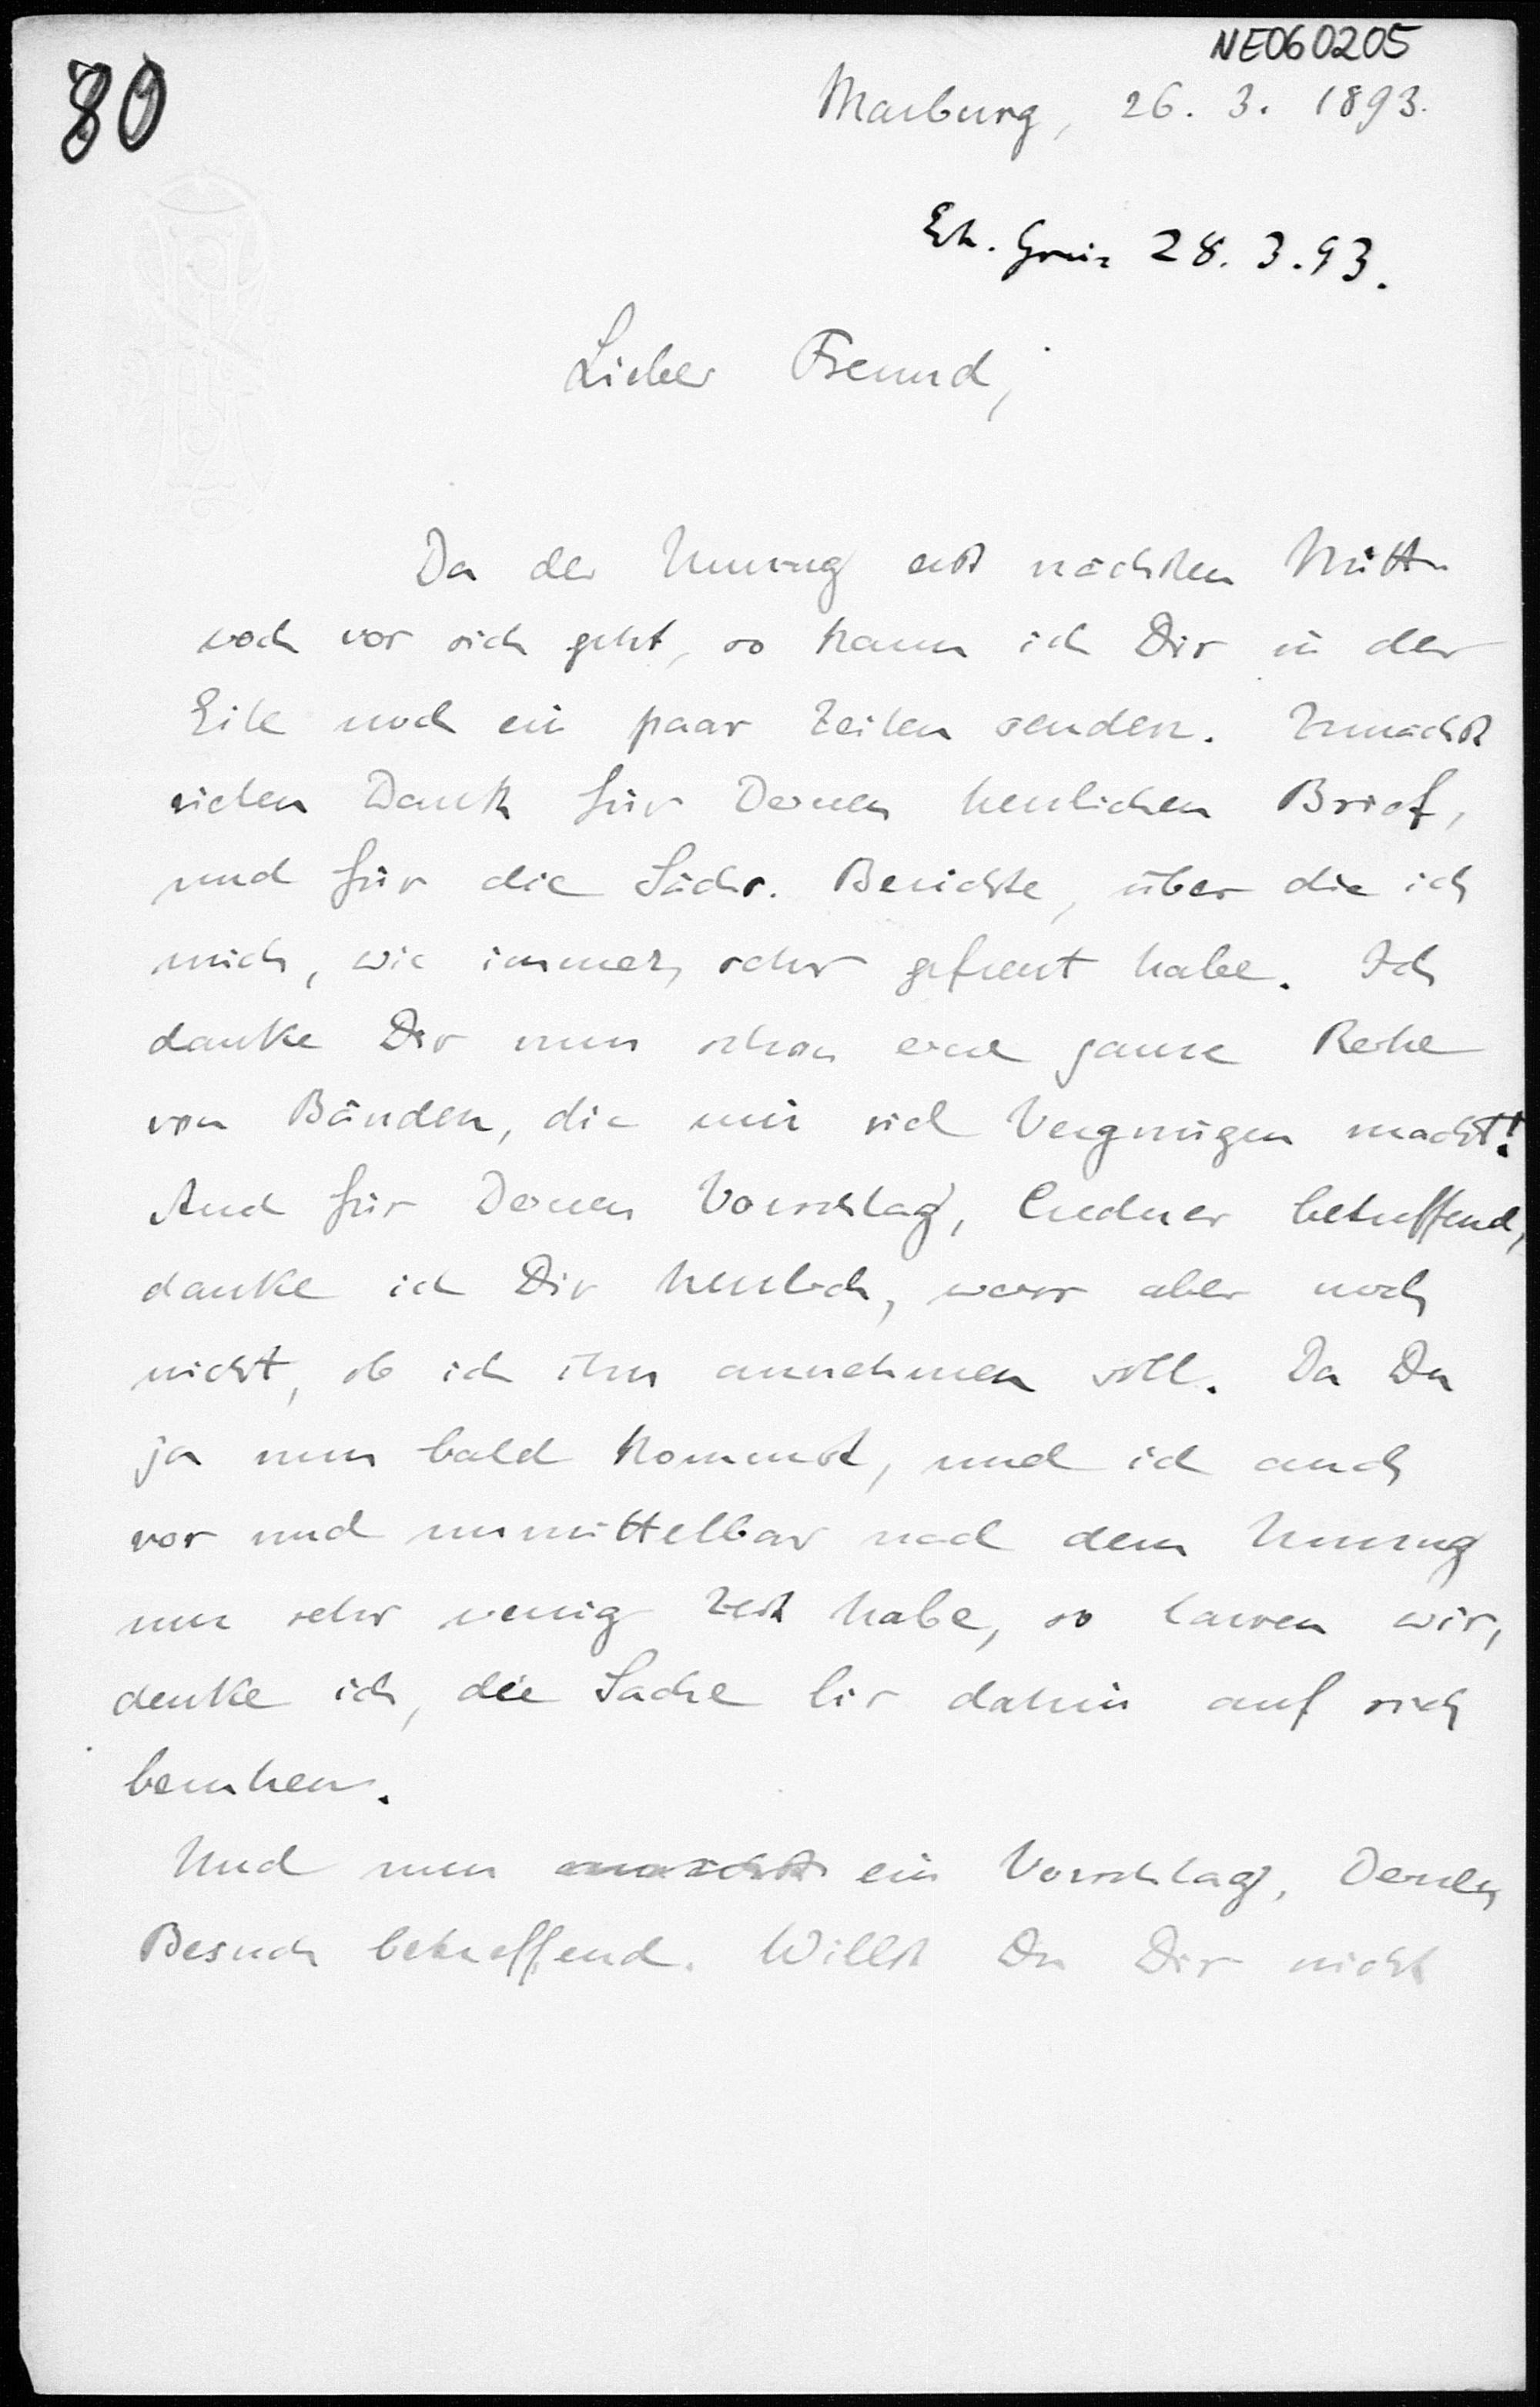 NE060205
80
Marburg, 26. 3. 1893.
Erh. Greiz 28. 3. 93.
Lieber Freund,
Da der Umzug erst nächsten Mitt-
woch vor sich geht, so kann ich Dir in der
Eile noch ein paar Zeilen senden. Zunächst
vielen Dank für Deinen herzlichen Brief,
und für die Sächs. Berichte, über die ich
mich, wie immer, sehr gefreut habe. Ich
danke Dir nun schon eine ganze Reihe
von Bänden, die mir viel Vergnügen macht!
Auch für Deinen Vorschlag, Credner betreffend,
danke ich Dir herzlich, weiss aber noch
nicht, ob ich ihn annehmen soll. Da Du
ja nun bald kommst, und ich auch
vor und unmittelbar nach dem Umzug
nur sehr wenig Zeit habe, so lassen wir,
denke ich, die Sache bis dahin auf sich
beruhen.
Und nun ein Vorschlag, Deinen
Besuch betreffend. Willst Du Dir nicht